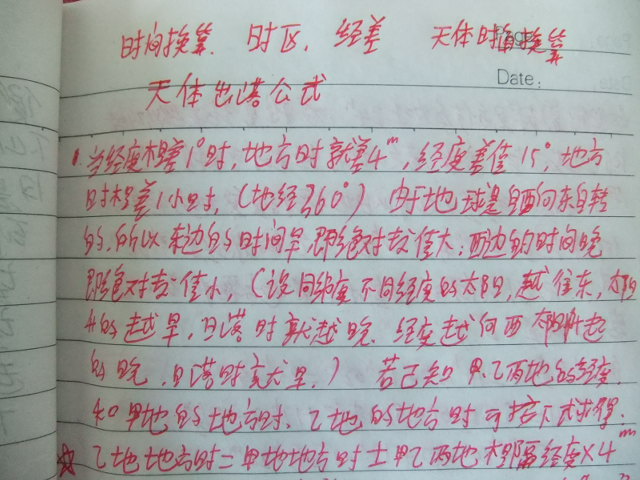 时间换算. 时区. 经差 天体时间换算
Date:
天体出落公式
1. 当经度相差1°时, 地方时就差4ᵐ, 经度差值15°, 地方
时相差1小时, (地经360°) 由于地球是自西向东自转
的, 所以东边的时间早, 即绝对数值大; 西边的时间晚
即绝对数值小, (设同纬度不同经度的太阳, 越往东, 太阳
升的越早, 日落时就越晚. 经度越向西 太阳升起
的晚, 日落时 早.) 若已知甲.乙两地的经度,
和甲地的地方时、乙地的地方时可按下式求得:
☆ 乙地地方时=甲地地方时±甲乙两地相隔经度×4ᵐ